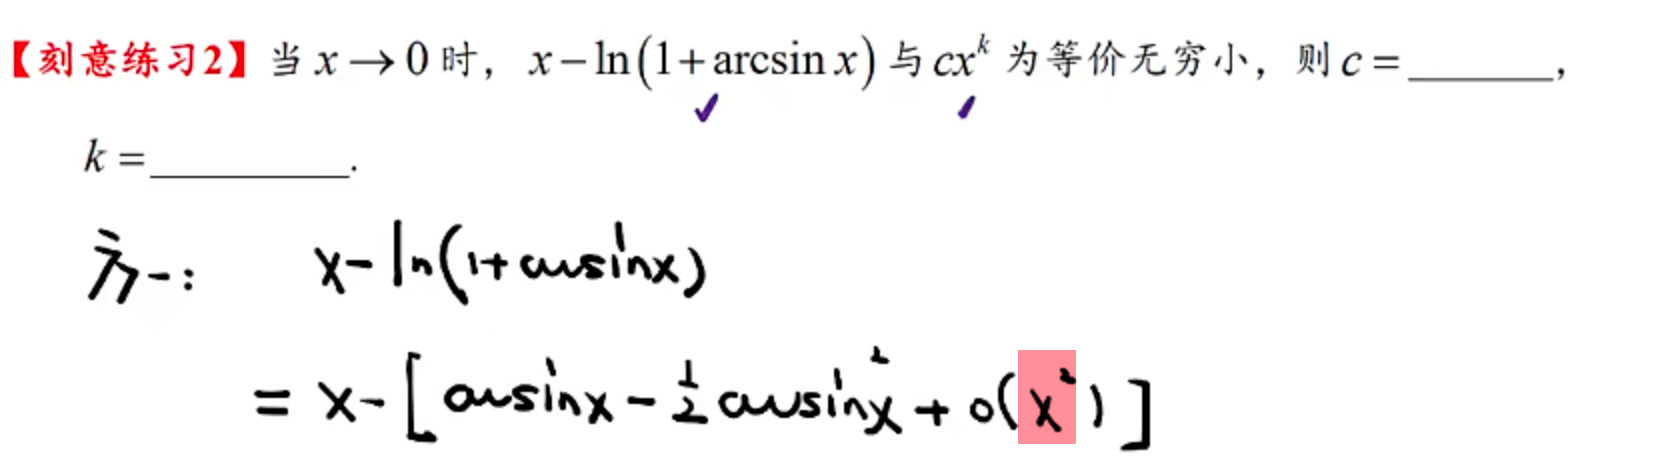 【刻意练习2】当 x → 0 时，x − ln(1 + arcsin x) 与 cx^k 为等价无穷小，则 c = ______，
k = ________.
方一： x − ln(1 + arcsinx)
= x − [arcsinx − 1/2 arcsin²x + o(x²)]